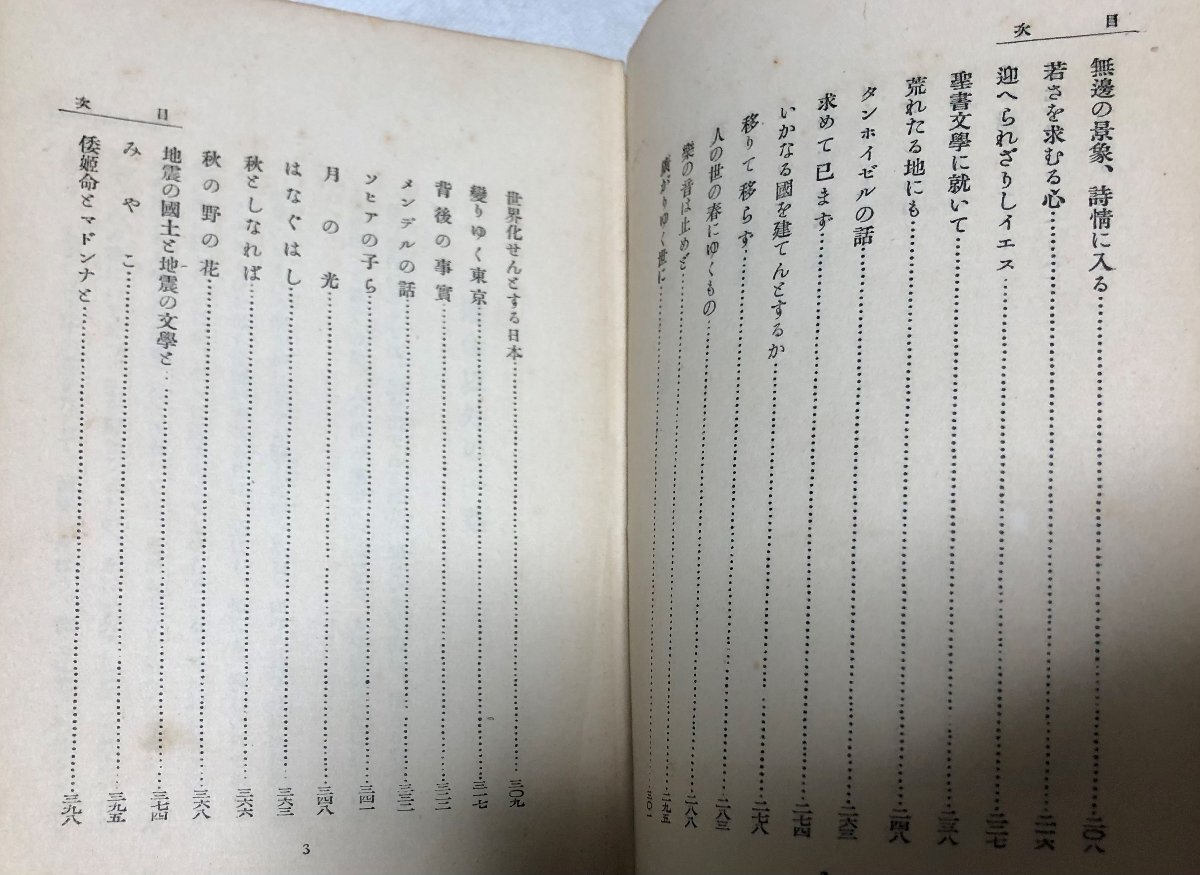 目次
無邊の景象、詩情に入る……二〇八
若さを求むる心……二一六
迎へられざりしイエス……二二七
聖書文學に就いて……二三八
荒れたる地にも……二四八
タンホイゼルの話……二六三
求めて已まず……二七四
いかなる國を建てんとするか……二七八
移りて移らず……二八三
人の世の春にゆくもの……二八八
樂の音は止めど……二九五
廣がりゆく世に……三〇一
世界化せんとする日本……三〇九
變りゆく東京……三一七
背後の事實……三二二
メンデルの話……三三二
ソヒアの子ら……三四一
月の光……三四八
はなぐはし……三六三
秋としなれば……三六六
秋の野の花……三六八
地震の國土と地震の文學と……三七四
みやこ……三九五
倭姬命とマドンナと……三九八
目次
3